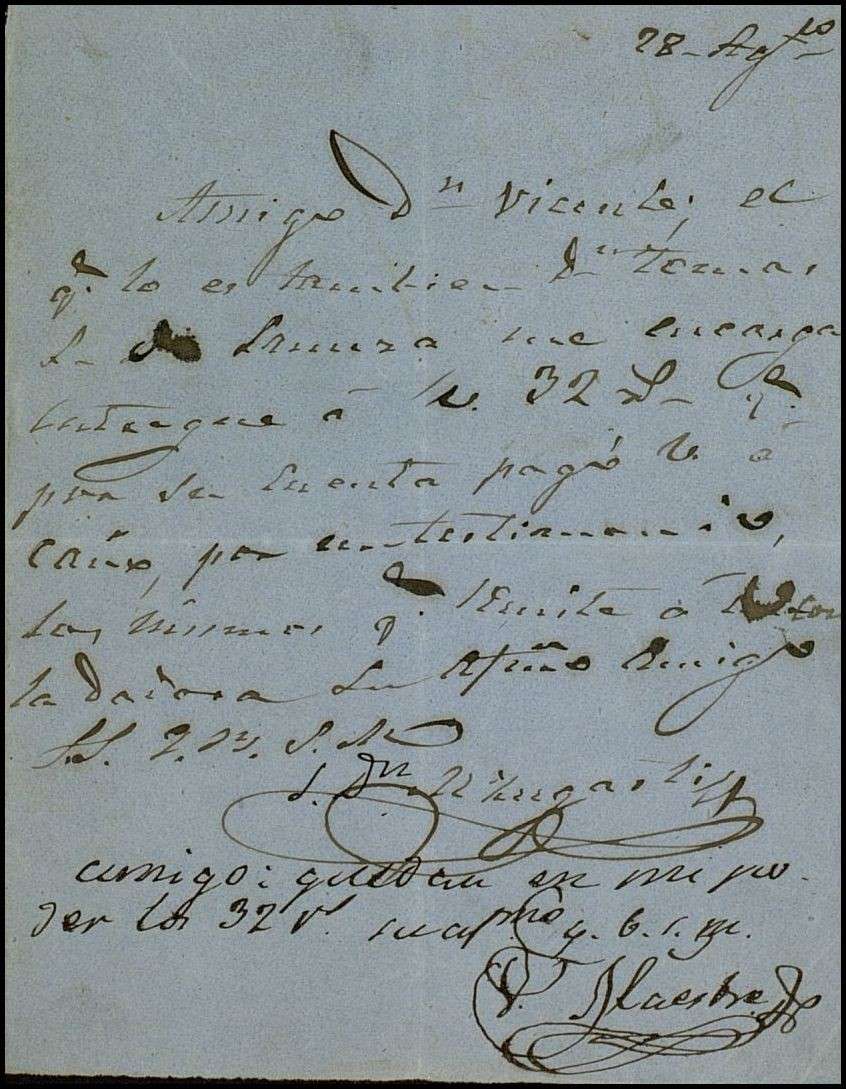 28 - Agto
Amigo Dn Vicente; el
q. lo es tambien Dn Tomas
Lanuza me encarga
entregue á V. 32 q.
por su cuenta pagó V. á
por un testimonio,
los mismos q. remite á V. con
la dadora su Afmo Amigo
S.S. Q. B. S. M.
amigo: quedan en mi po-
der los 32 rs. q. b. s. m.
V. Maestre